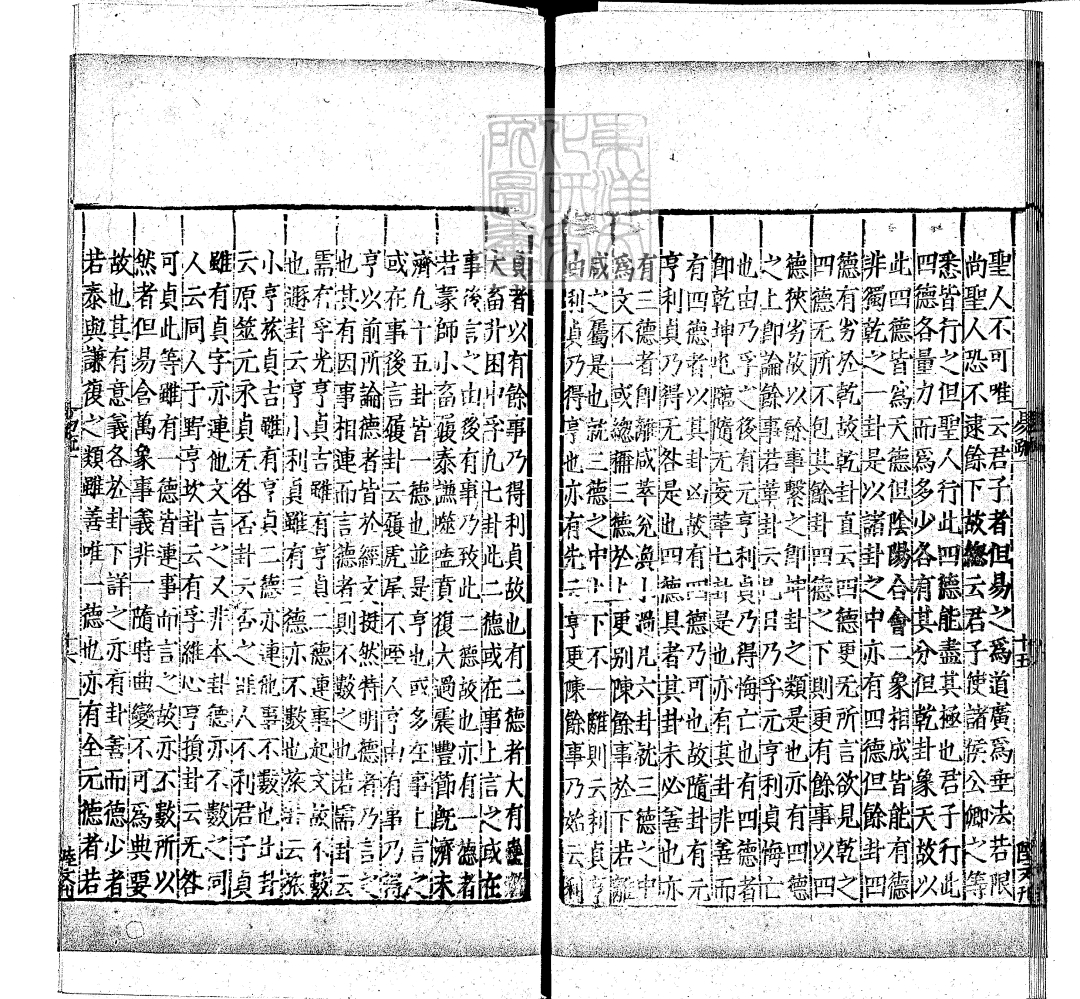 聖人不可唯云君子者但易之爲道廣爲垂法若限
尚聖人恐不逮餘下故緫云君子使諸侯公卿之等
悉皆行之但聖人行此四德能盡其極也君子行此
四德各量力而爲多少各有其分但乾卦象天故以
此四德皆爲天德但陰陽合會二象相成皆能有德
非獨乾之一卦是以諸卦之中亦有四德但餘卦四
德有劣於乾故乾卦直云四德更无所言欲見乾之
四德无所不包其餘卦四德之下則更有餘事以四
德狹劣故以餘事繫之即坤卦之類是也亦有四德
之上即論餘事若革卦云巳日乃孚元亨利貞悔亡
也由乃孚之後有元亨利貞乃得悔亡也有四德者
即乾坤屯臨隨无妄革七卦是也亦有其卦非善而
有四德者以其卦凶故有四德乃可也故隨卦有元
亨利貞乃得无咎是也四德具者其卦未必善也亦
有三德者即離咸萃兊渙小過凡六卦就三德之中
爲文不一或緫稱三德於上更別陳餘事於下若離
咸之屬是也就三德之中上下不一離則云利貞亨
由利貞乃得亨也亦有先云亨更陳餘事乃始云利
貞者以有餘事乃得利貞故也有二德者大有蠱漸
大畜升困中孚凡七卦此二德或在事上言之或在
事後言之由後有事乃致此二德故也亦有一德者
若蒙師小畜履泰謙噬嗑賁復大過震豐節旣濟未
濟凡十五卦皆一德也並是亨也或多在事上言之
或在事後言履卦云履虎尾不咥人亨由有事乃得
亨以前所論德者皆於經文挺然特明德者乃言之
也其有因事相連而言德者則不數之也若需卦云
需有孚光亨貞吉雖有亨貞二德連事起文故不數
也遯卦云亨小利貞雖有三德亦不數也旅卦云旅
小亨旅貞吉雖有亨貞二德亦連他事不數也比卦
云原筮元永貞无咎否卦云否之匪人不利君子貞
雖有貞字亦連他文言之又非本卦德亦不數之同
人云同人于野亨坎卦云有孚維心亨損卦云无咎
可貞此等雖有一德皆連事而言之故亦不數所以
然者但易含萬象事義非一隨時曲變不可爲典要
故也其有意義各於卦下詳之亦有卦善而德少者
若泰與謙復之類雖善唯一德也亦有全无德者若